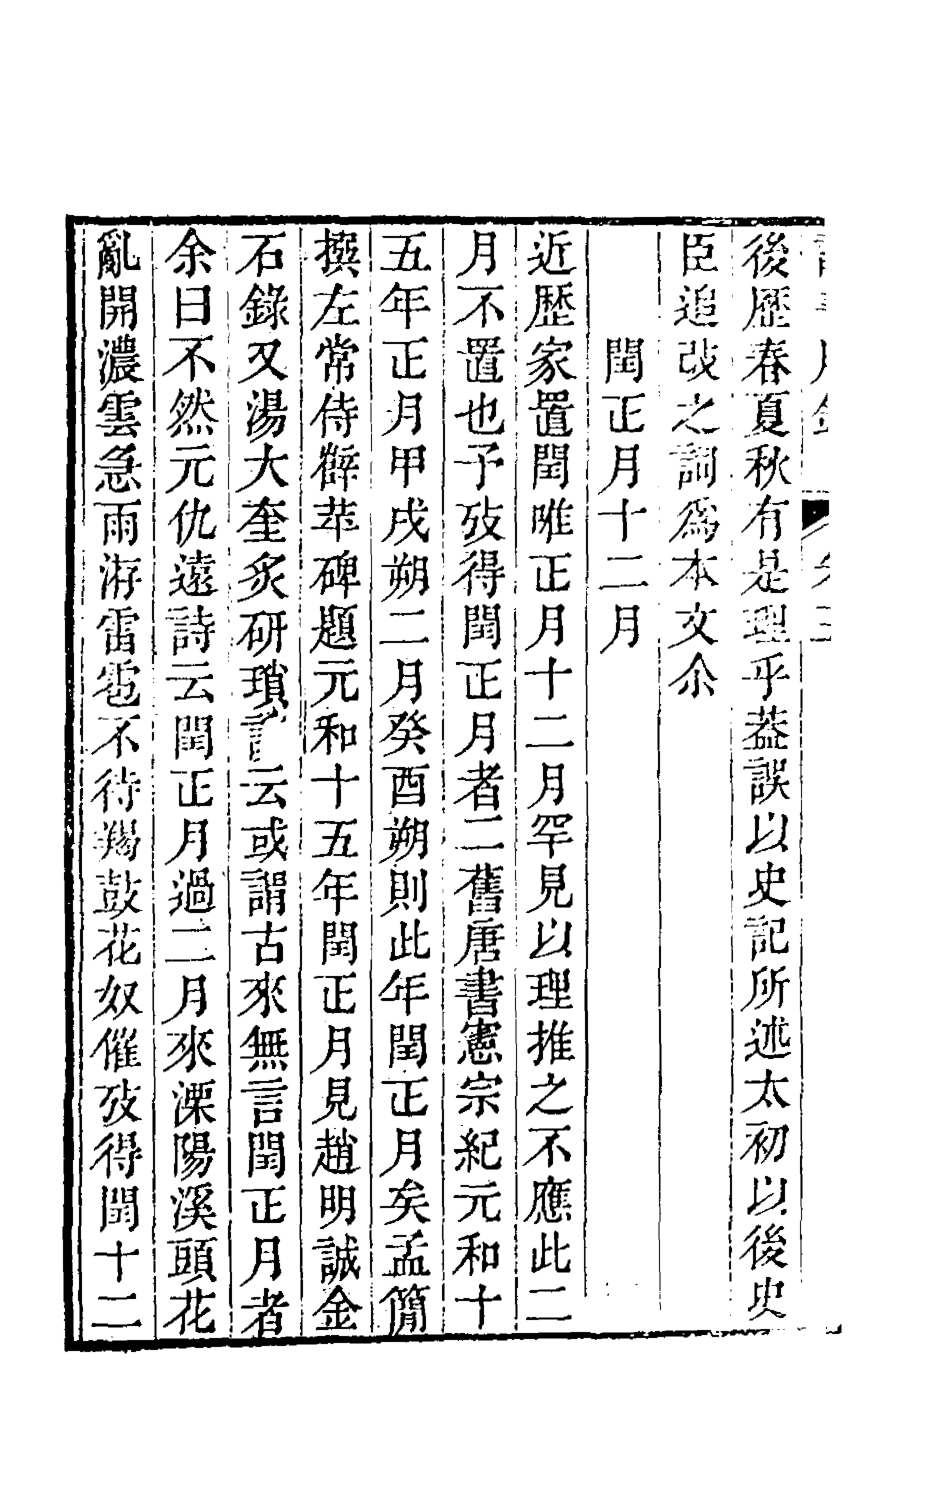 後歷春夏秋有是理乎葢誤以史記所述太初以後史
臣追改之詞爲本文尒
閏正月十二月
近歷家置閏唯正月十二月罕見以理推之不應此二
月不置也予攷得閏正月者二舊唐書憲宗紀元和十
五年正月甲戌朔二月癸酉朔則此年閏正月矣孟簡
撰左常侍薛苹碑題元和十五年閏正月見趙明誠金
石錄又湯大奎炙硏瑣言云或謂古來無言閏正月者
余曰不然元仇遠詩云閏正月過二月來溧陽溪頭花
亂開濃雲急雨洊雷雹不待羯鼓花奴催攷得閏十二